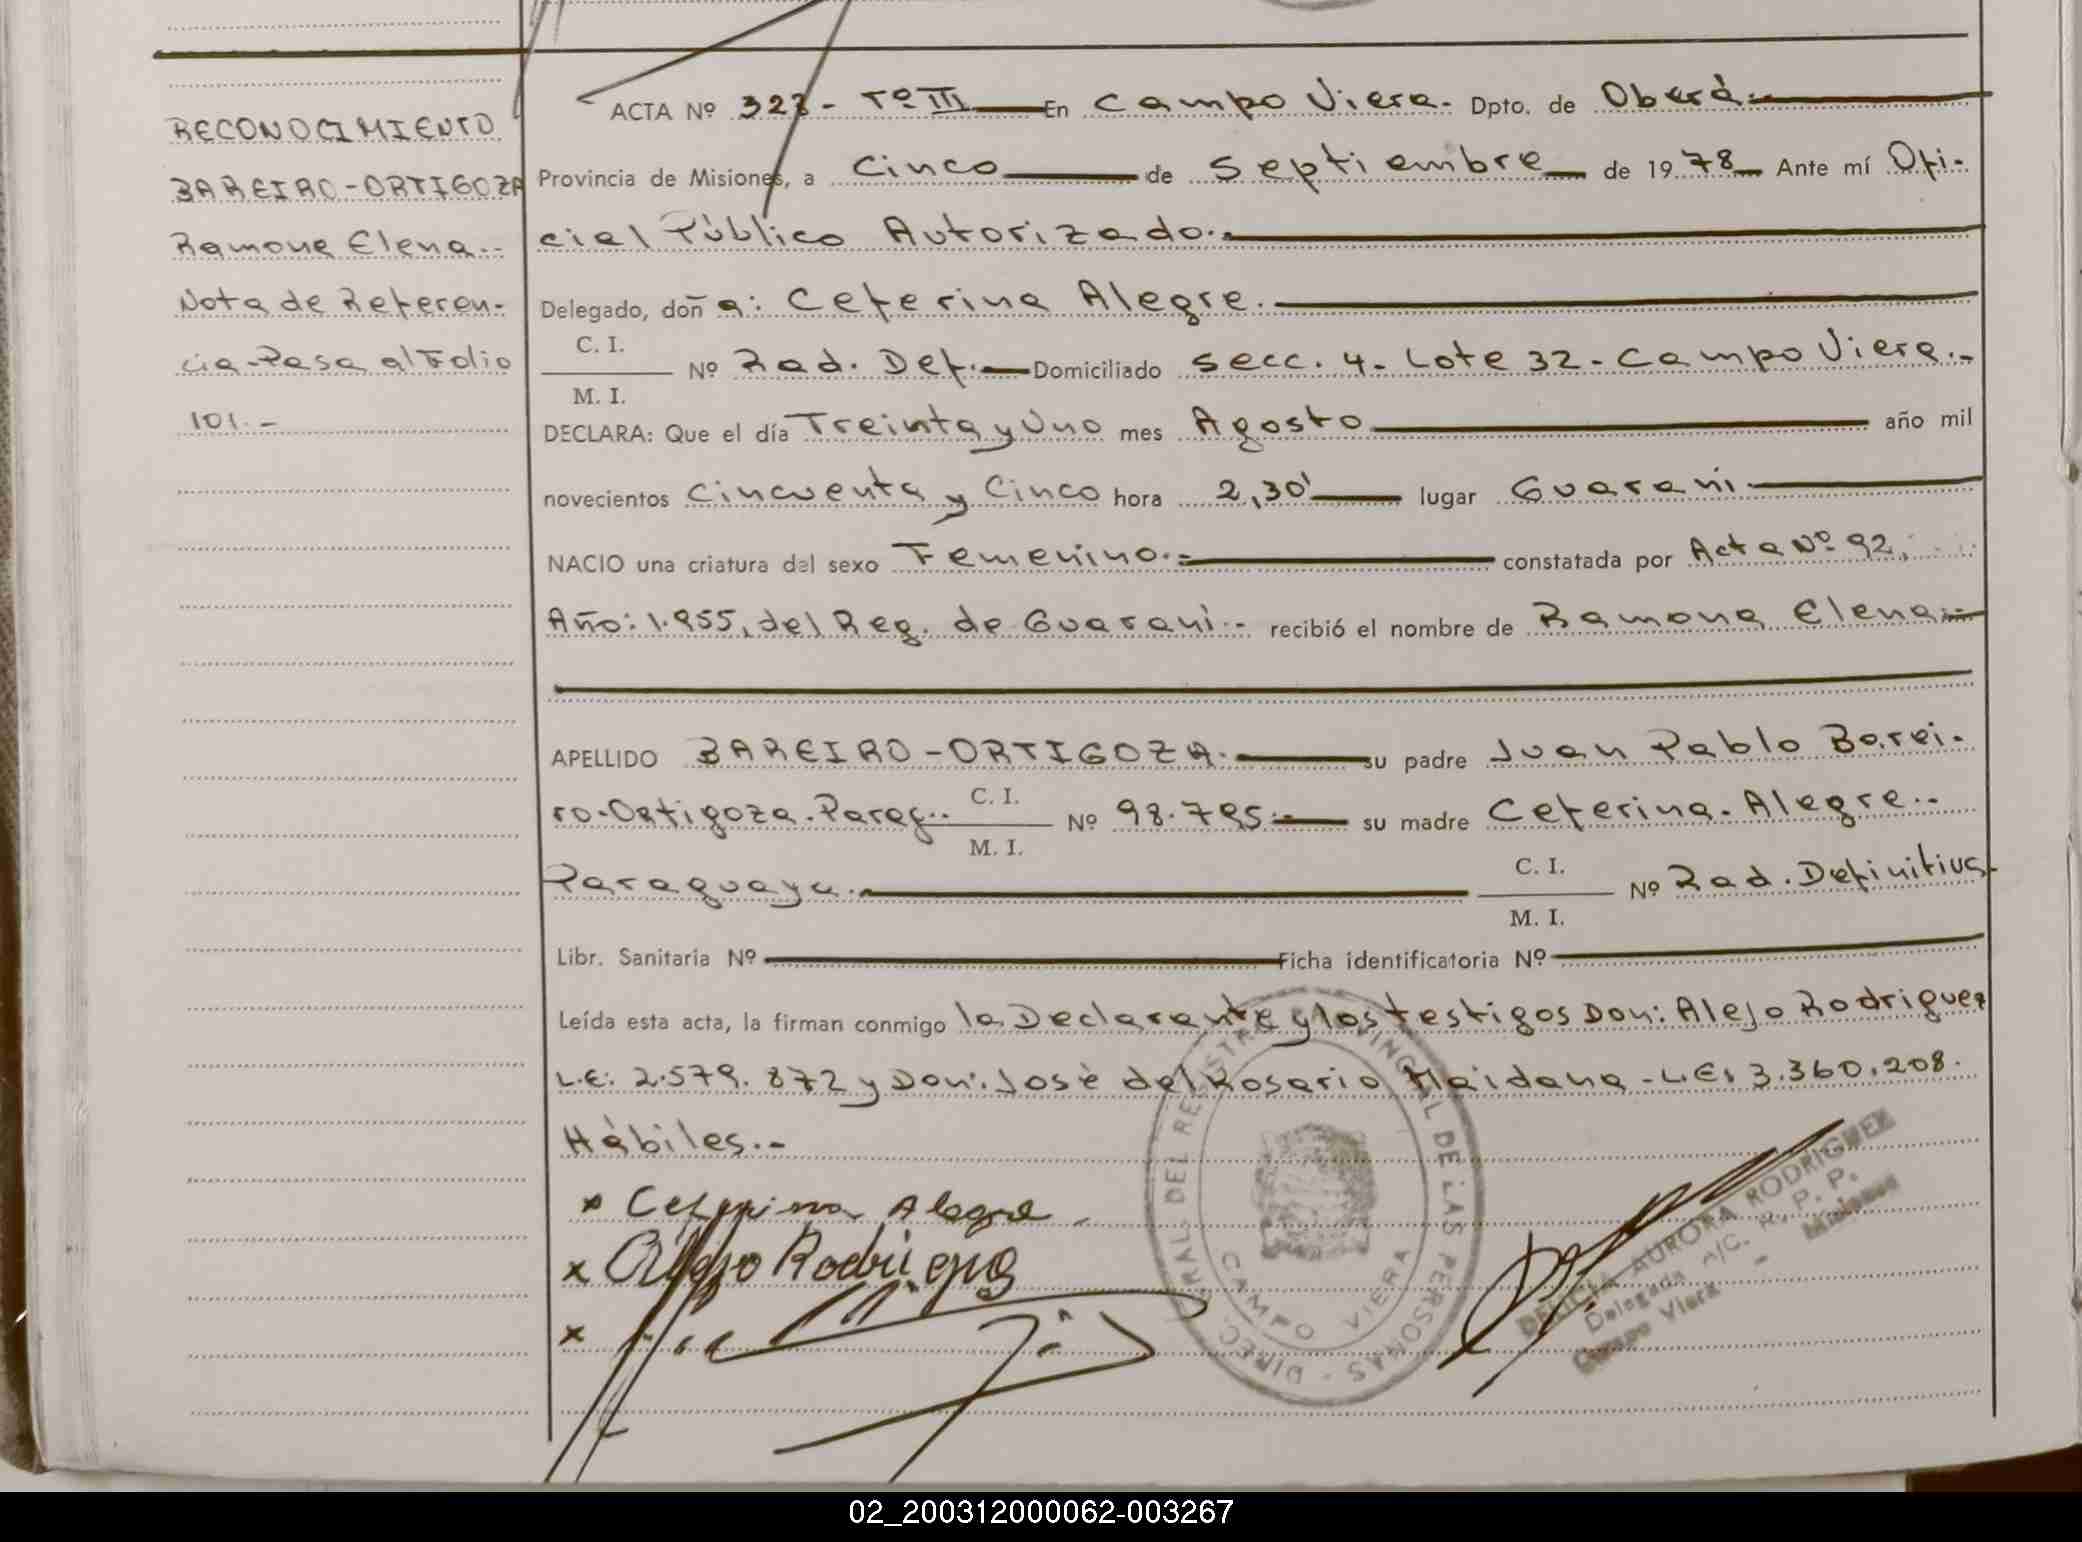 RECONOCIMIENTO
BAREIRO-ORTIGOZA
Ramona Elena.-
Nota de Referen-
cia-Pasa al Folio
101.-
ACTA Nº 328- Tº III En Campo Viera. Dpto. de Oberá.
Provincia de Misiones, a Cinco de Septiembre de 1978 Ante mí Ofi-
cial Público Autorizado.-
Delegado, doña: Ceferina Alegre.
C. I.
M. I.
Nº Rad. Def. Domiciliado Secc. 4- Lote 32- Campo Viera.-
DECLARA: Que el día Treinta y Uno mes Agosto año mil
novecientos Cincuenta y Cinco hora 2,30' lugar Guaraní
NACIO una criatura del sexo Femenino.- constatada por Acta Nº 92,
Año: 1.955, del Reg. de Guaraní.- recibió el nombre de Ramona Elena.-
APELLIDO BAREIRO-ORTIGOZA. su padre Juan Pablo Barei-
ro-Ortigoza.Parag..
C. I.
M. I.
Nº 98.795.- su madre Ceferina. Alegre.-
Paraguaya.
C. I.
M. I.
Nº Rad. Definitiva
Libr. Sanitaria Nº Ficha identificatoria Nº
Leída esta acta, la firman conmigo la Declarante y los testigos Don: Alejo Rodriguez
L.E: 2.579.872 y Don: José del Rosario Maidana-L.E: 3.360.208.
Hábiles.-
x Ceferina Alegre
x Alejo Rodriguez
x
DIREC. GRAL. DEL REGISTRO PROVINCIAL DE LAS PERSONAS
CAMPO VIERA
DELICIA AURORA RODRIGUEZ
Delegada A/C. R. P. P.
Campo Viera - Misiones
02_200312000062-003267